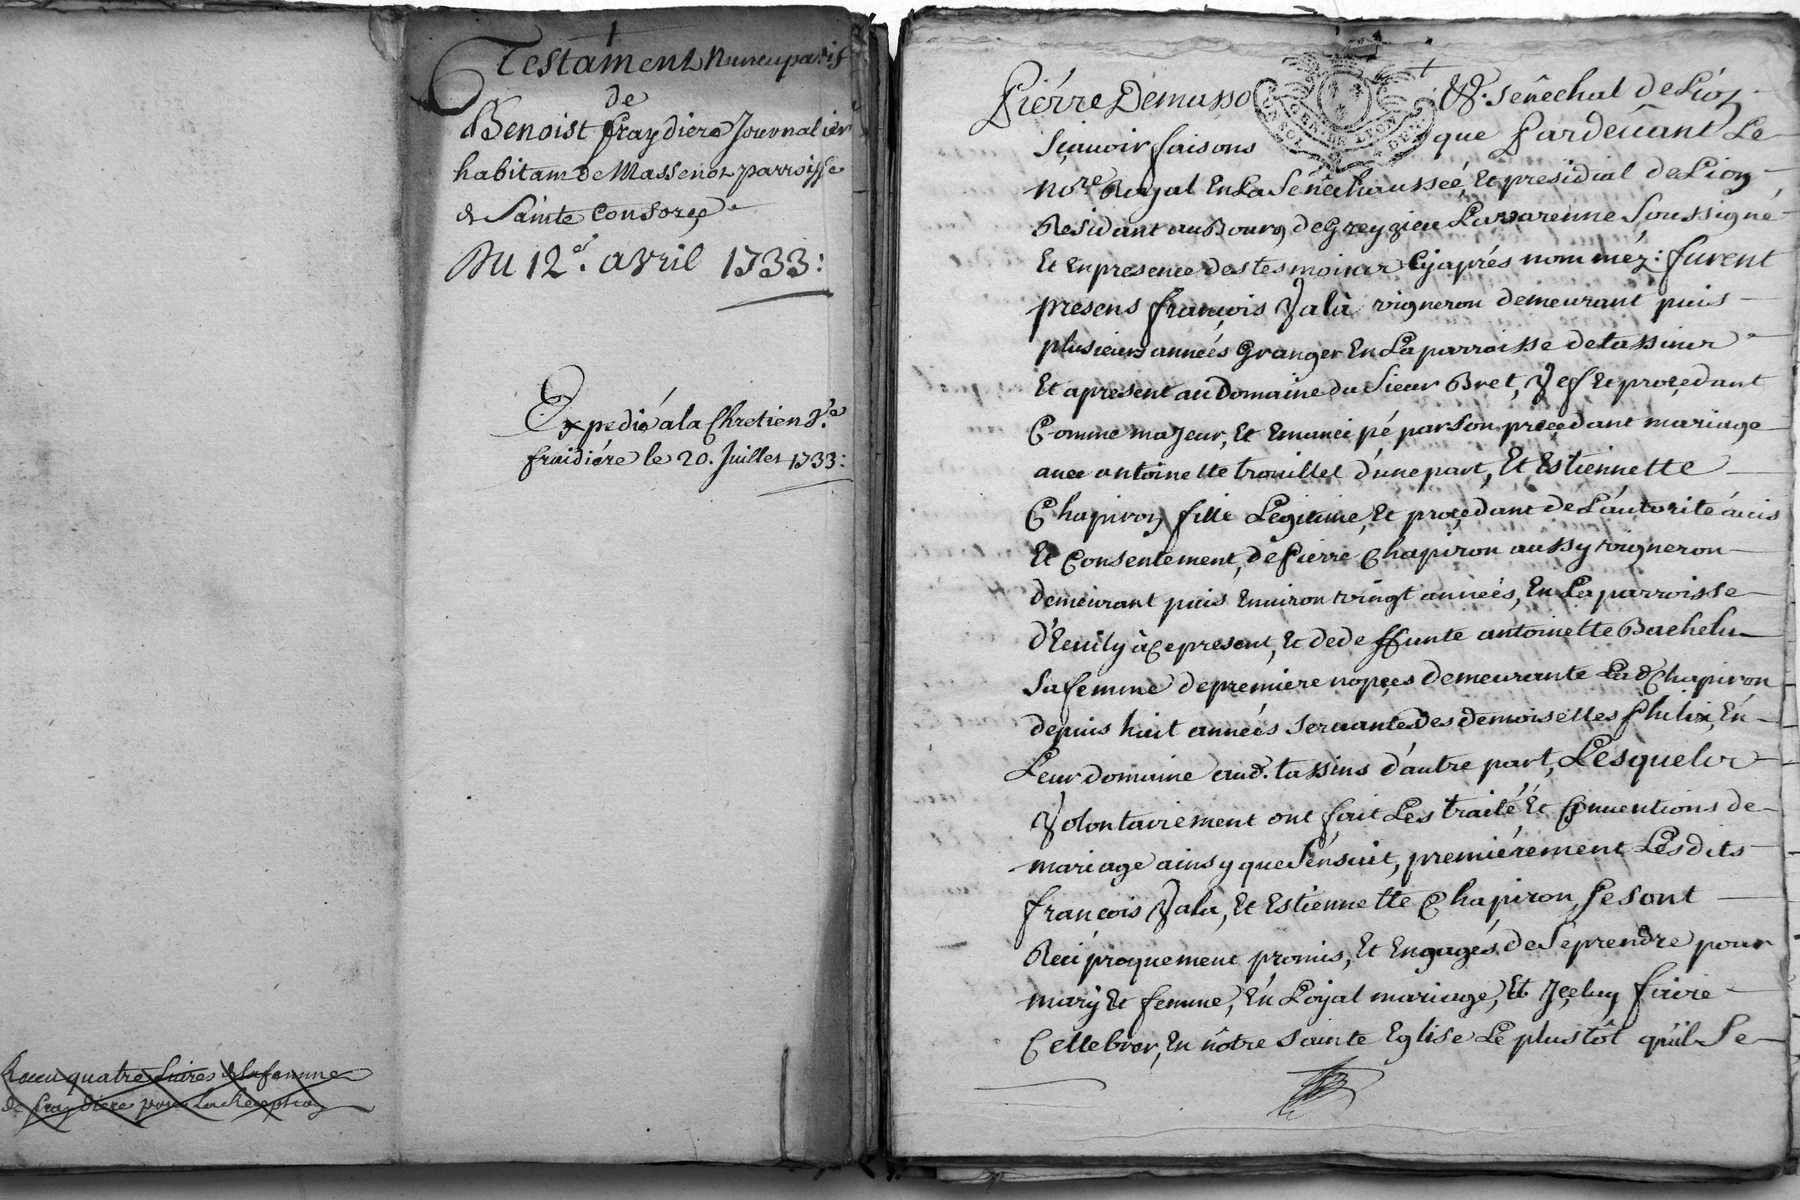 Testament Nuncupatif
de
Benoist fraydiere Journalier
habitant de Massenot parroisse
de Sainte Consorçe
Du 12e. avril 1733:
Expedié a la Chretien Ve.
fraidiére le 20. Juillet 1733:
Receu quatre Livres de la femme
de fraydiere pour La Reception
Piérre Demasso &. Sénéchal de Lion
Sçauoir faisons que Pardeuant Le
nore. Royal En La Sénéchaussée, Et presidial de Lion,
Residant au Bourg de Greyzieu La varenne Soussigné
Et En presence des tesmoins Cy aprés nomméz: furent
presens françois Jala vigneron demeurant puis
plusieurs années Granger En La parroisse de tassins
Et apresent au Domaine du Sieur Bret, Y et procedant
Comme majeur, Et Emancipé par Son precedant mariage
auec antoinette trouillet d'une part, Et Estiennette
Chapiron fille Légitime, Et procedant de L'autorité áuis
Et Consentement, de Pierre Chapiron aussy vigneron
demeurant puis Enuiron vingt années, En La parroisse
d'Ecuily à Ce present, Et de deffunte antoinette Bachelu
Sa femme de premiere nopces demeurante Lad. Chapiron
depuis huit années Seruante des demoiselles Philis, En
Leur domaine aud. tassins d'autre part, Lesquels
Volontairement ont fait Les traité Et Conuentions de
mariage ainsy que S'énsuit, premiérement Lesdits
françois Jala, Et Estiennette Chapiron, Se sont
Réciproquement promis, Et Engagés, de Se prendre pour
mary Et femme, En Loyal mariage, Et Yçeluy faire
Cellebrer, En nôtre Sainte Eglise Le plustôt qu'il Se